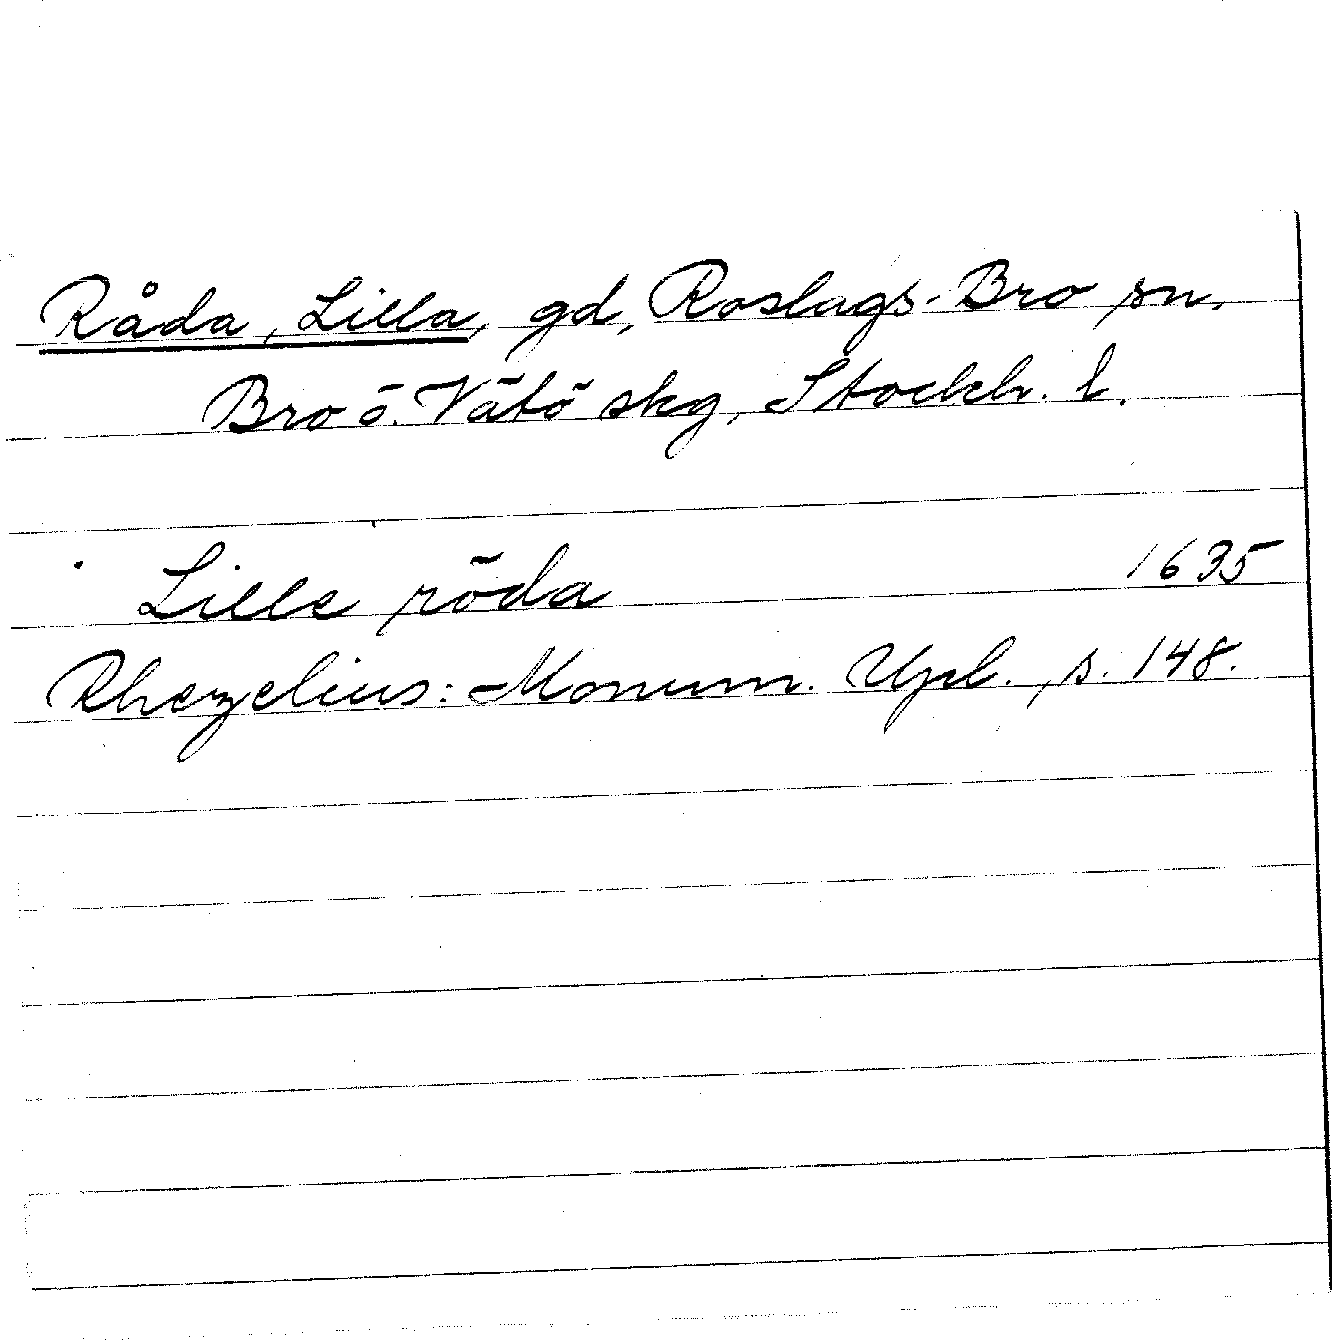 Råda, Lilla, gd, Roslags-Bro sn,
Bro o. Vätö skg, Stockh. l.
Lille röda 1635
Rhezelius: Monum. Upl., s. 148.